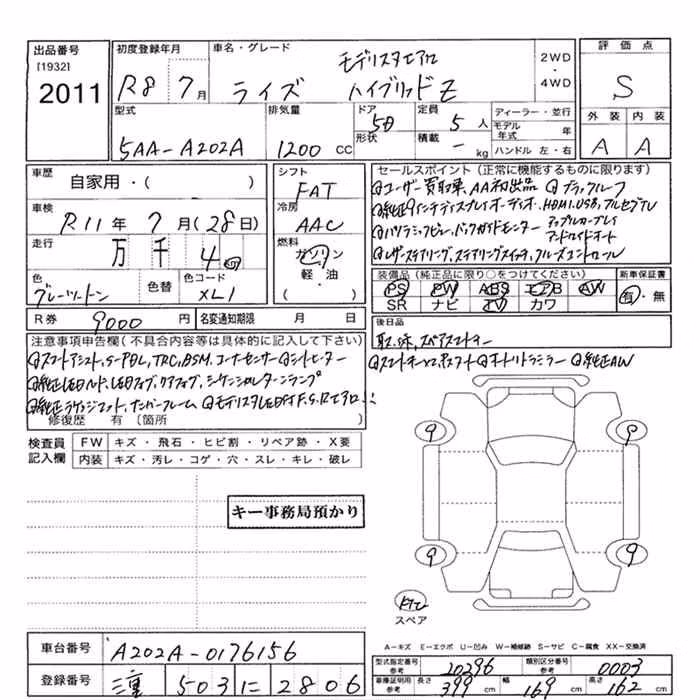 出品番号 初度登録年月 車名・グレード 2WD・4WD 評価点
[1932] 2011 R8年 7月 モデリスタエアロ
ライズ ハイブリッドZ S
型式 排気量 ドア形状 定員 積載 ディーラー・並行 外装 内装
5AA-A202A 1200 cc 5D 5人 - kg モデル年式 年 A A
ハンドル 左・右
車歴 シフト セールスポイント(正常に機能するものに限ります)
自家用・( ) FAT ユーザー買取車、AA初出品 ブラックルーフ
車検 冷房 純正9インチディスプレイオーディオ、HDMI、USB、フルセグTV
R11年 7月(28日) AAC パノラミックビュー、バックガイドモニター アップルカープレイ
アンドロイドオート
走行 燃料 レザーステアリング、ステアリングスイッチ、クルーズコントロール
万 千 4 km ガソリン 軽・油
色 色替 色コード 装備品(純正品に限り○をつけてください) 新車保証書
グレーツートン XL1 ( ) PS PW ABS エアB AW 有・無
SR ナビ TV カワ
R券 9000円 名変通知期限 月 日 後日品
注意事項申告欄(不具合内容等は具体的に記入して下さい) 取、保、スペアスマートキー
スマートアシスト、S-PBL、TRC、BSM、コーナーセンサー シートヒーター
スマートキーx2、プッシュスタート オートリトラミラー 純正AW
純正LEDヘッド、LEDフォグ、リアフォグ、シーケンシャルターンランプ
純正ラゲッジマット、ナンバーフレーム モデリスタLED付F、S、Rエアロ
修復歴 有 〔箇所 )
検査員記入欄 FW キズ・飛石・ヒビ割・リペア跡・X要
内装 キズ・汚レ・コゲ・穴・スレ・キレ・破レ
9 9
キー事務局預かり
9 9
スペア
車台番号 A202A-0176156
A-キズ E-エクボ U-凹み W-補修跡 S-サビ C-腐食 XX-交換済
型式指定番号 参考 20296 類別区分番号 参考 0003
登録番号 三重 503 に 2806
車検証明用 参考 長さ 399 cm 幅 169 cm 高さ 162 cm